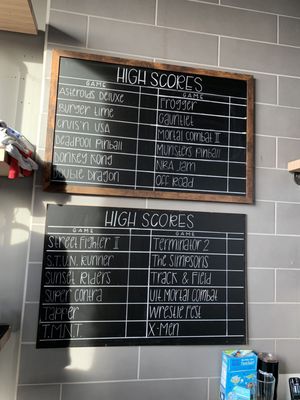 HIGH SCORES
GAME
GAME
Asteroids Deluxe
Frogger
Burger Time
Gauntlet
Cruis'n USA
Mortal Combat II
Deadpool Pinball
Munsters Pinball
Donkey Kong
NBA Jam
Double Dragon
OFF Road
HIGH SCORES
GAME
GAME
Street Fighter II
Terminator 2
S.T.U.N. Runner
The Simpsons
Sunset Riders
Track & Field
Super Contra
Ult. Mortal Combat
Tapper
Wrestle Fest
T.M.N.T.
X-Men